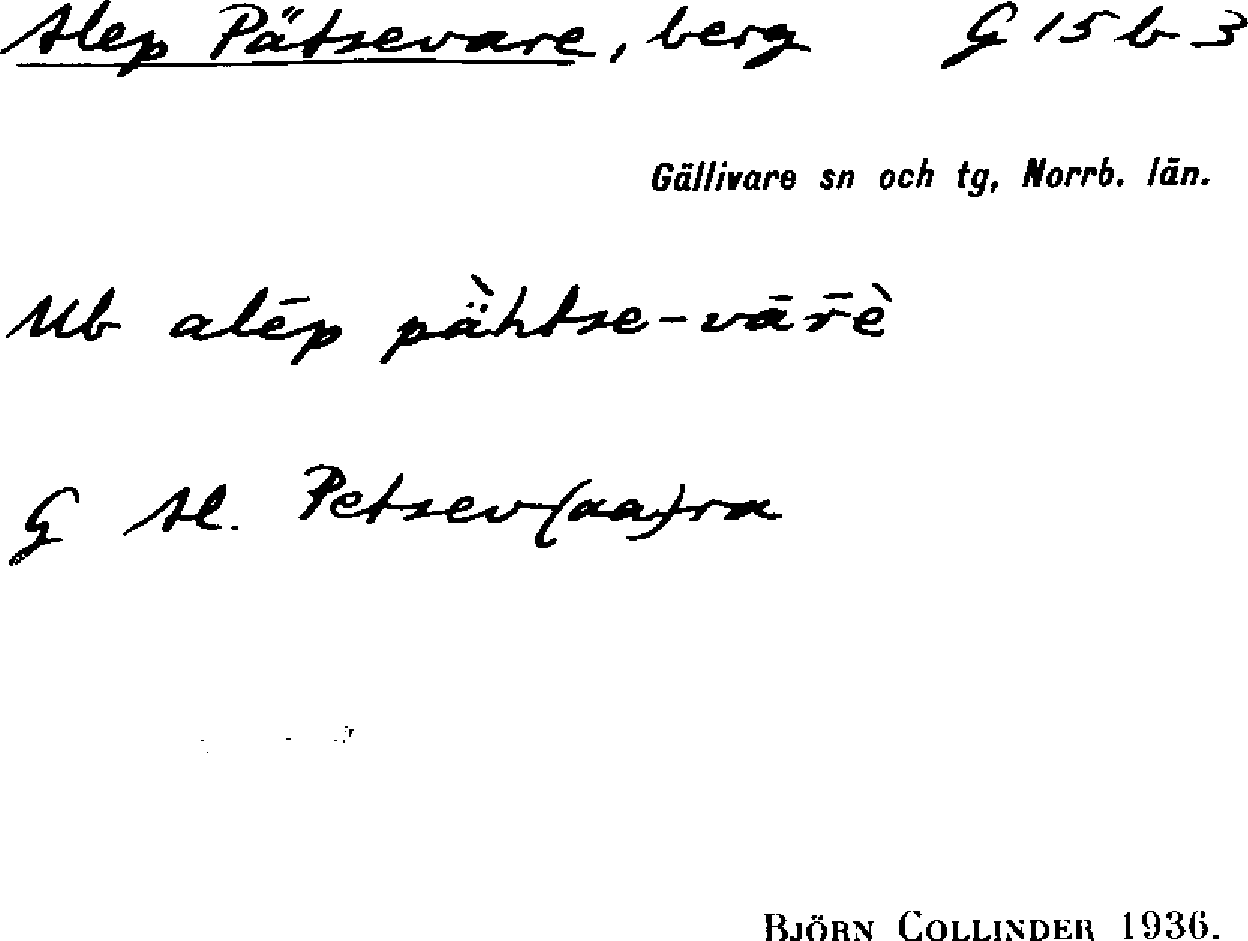 Alep Pätsevare, berg G 15 b 3
Gällivare sn och tg, Norrb. län.
Ub alēp pä̀htse-vār̄è
G Al. Petsev(aa)ra
BJÖRN COLLINDER 1936.